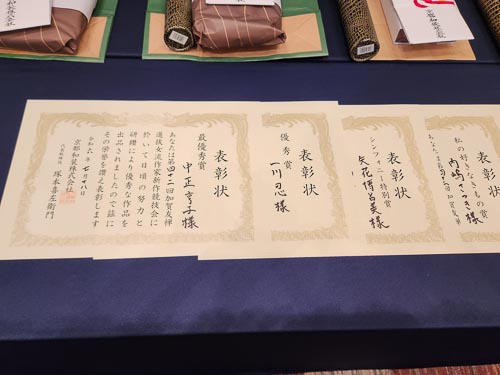 表彰状
私の好きなきもの賞
内嶋さつき様
あなたは第四十二回加賀友禅
表彰状
シンフォニー特別賞
矢花博呂美様
表彰状
優秀賞
一川忍様
表彰状
最優秀賞
中正亨子様
あなたは第四十二回加賀友禅
選抜女流作家新作競技会に
於いて日頃の努力と
研鑽により優秀な作品を
出品されましたので茲に
その栄誉を讃え表彰します
令和六年七月十八日
京都和装株式会社
代表取締役
塚本喜左衛門
京都和装株式会社